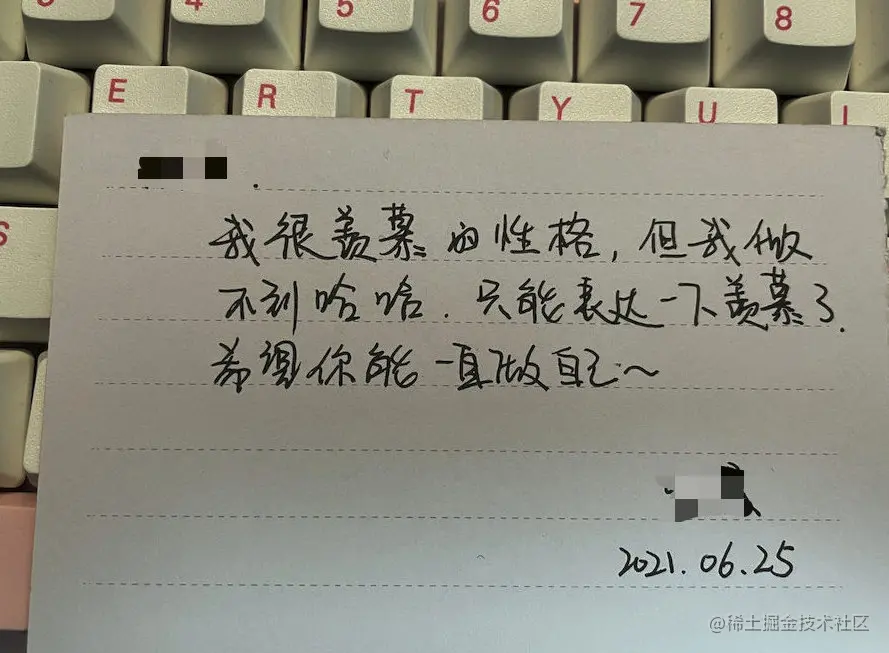 5
6
7
8
E
R
T
Y
U
S
我很羡慕的性格，但我做
不到哈哈．只能表达一下羡慕了．
希望你能一直做自己～
2021.06.25
@稀土掘金技术社区